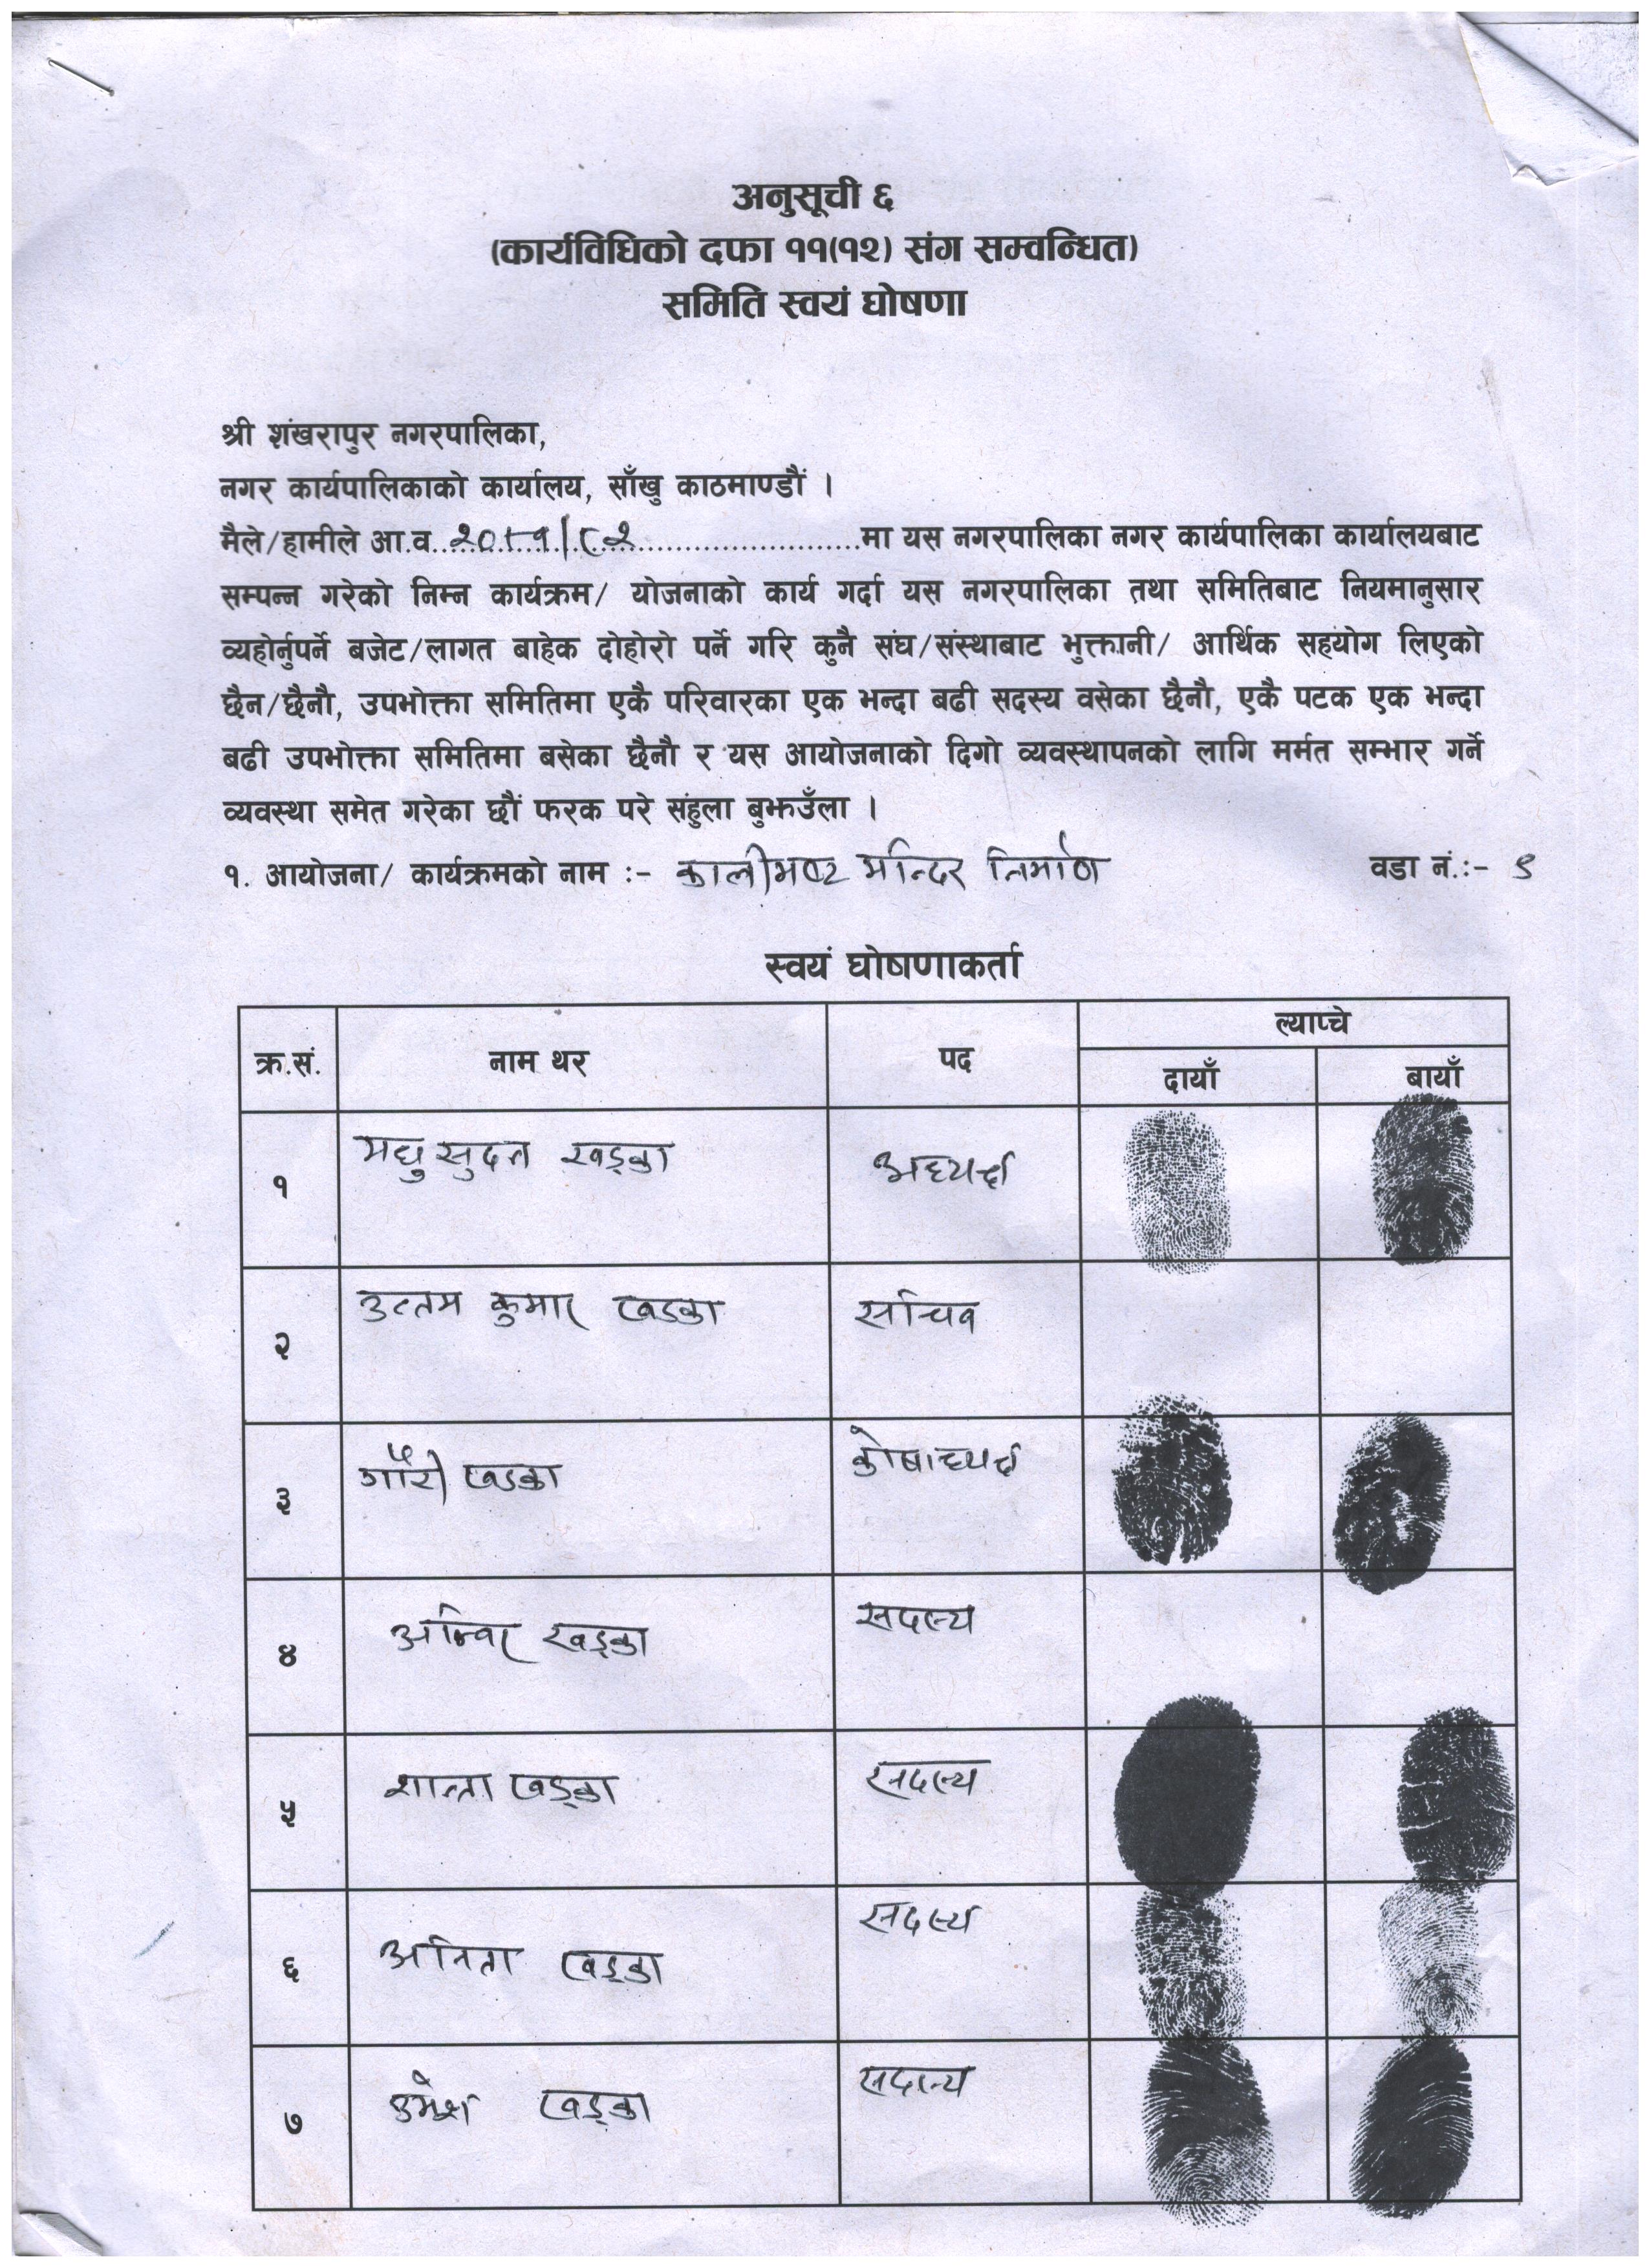 अनुसूची ६
(कार्यविधिको दफा ११(१२) संग सम्वन्धित)
समिति स्वयं घोषणा
श्री शंखरापुर नगरपालिका,
नगर कार्यपालिकाको कार्यालय, साँखु काठमाण्डौं ।
मैले/हामीले आ.व. २०८१/८२ मा यस नगरपालिका नगर कार्यपालिका कार्यालयबाट
सम्पन्न गरेको निम्न कार्यक्रम/ योजनाको कार्य गर्दा यस नगरपालिका तथा समितिबाट नियमानुसार
व्यहोर्नुपर्ने बजेट/लागत बाहेक दोहोरो पर्ने गरि कुनै संघ/संस्थाबाट भुक्तानी/ आर्थिक सहयोग लिएको
छैन/छैनौ, उपभोक्ता समितिमा एकै परिवारका एक भन्दा बढी सदस्य वसेका छैनौ, एकै पटक एक भन्दा
बढी उपभोक्ता समितिमा बसेका छैनौ र यस आयोजनाको दिगो व्यवस्थापनको लागि मर्मत सम्भार गर्ने
व्यवस्था समेत गरेका छौं फरक परे संहुला बुझाउँला ।
१. आयोजना/ कार्यक्रमको नाम :- मन्दिर निर्माण वडा नं.:- ९
स्वयं घोषणाकर्ता
क्र.सं. नाम थर पद ल्याप्चे
दायाँ बायाँ
१ मधुसुदन खड्का अध्यक्ष
२ उत्तम कुमार खडका सचिव
३ गौरी खडका कोषाध्यक्ष
४ खड्का सदस्य
५ शान्ता खड्का सदस्य
६ अनिता खड्का सदस्य
७ उमेश खड्का सदस्य